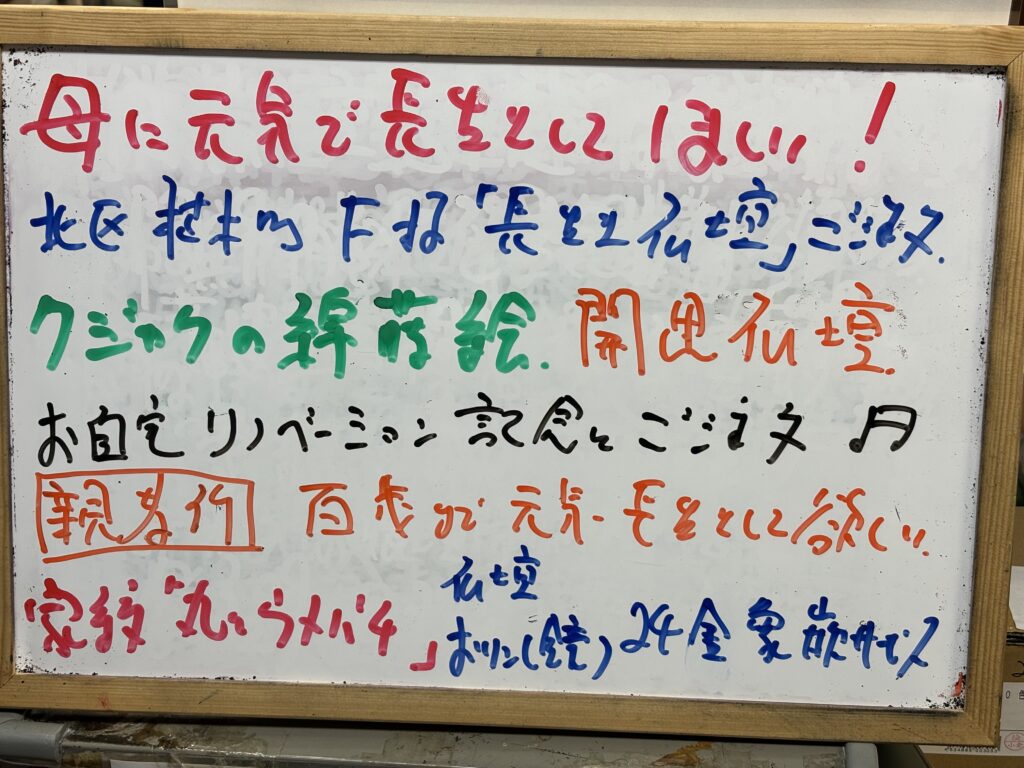 母に元気で長生きしてほしい!
北区 植木町 F様「長生き仏壇」ご注文.
クジャクの錦蒔絵. 開思仏壇.
お自宅リノベーション記念とご注文
親孝行 百歳まで元気長生きして欲しい.
家紋「丸にウメバチ」
仏壇
おリン(鏡) 24金象嵌サービス